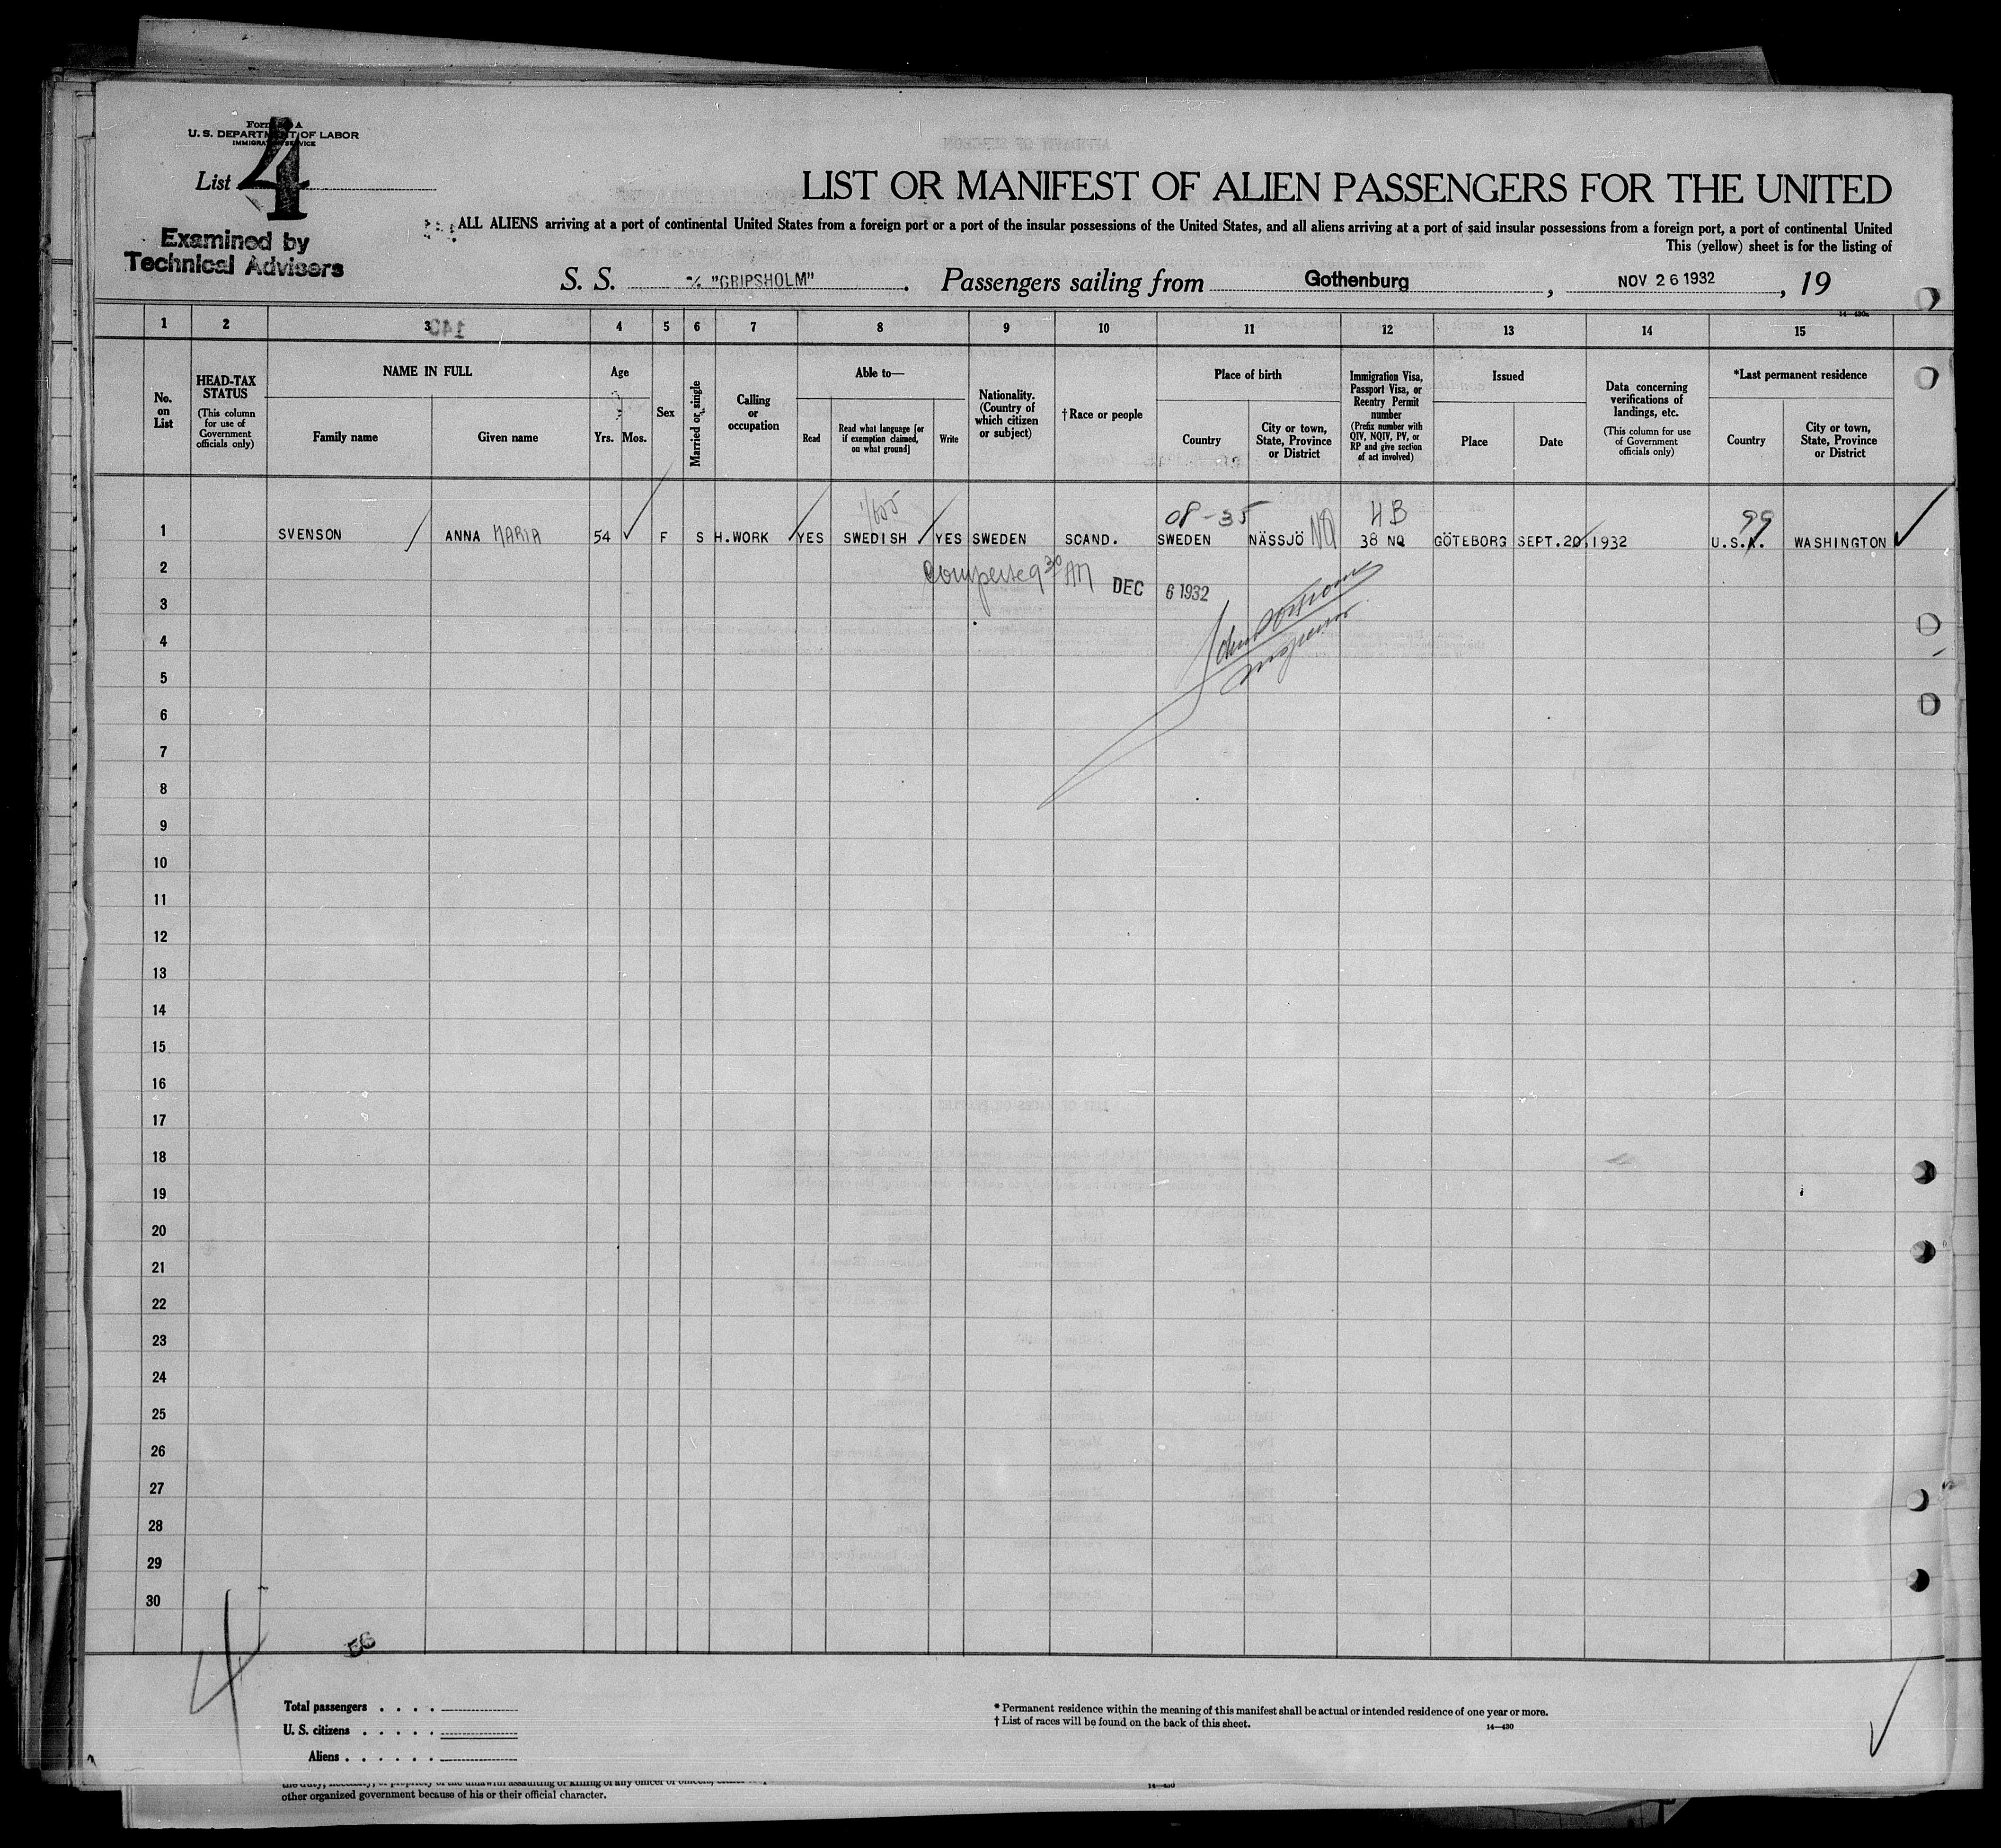 Form A
U. S. DEPARTMENT OF LABOR
IMMIGRATION SERVICE
List 4
Examined by
Technical Advisers
LIST OR MANIFEST OF ALIEN PASSENGERS FOR THE UNITED
ALL ALIENS arriving at a port of continental United States from a foreign port or a port of the insular possessions of the United States, and all aliens arriving at a port of said insular possessions from a foreign port, a port of continental United
This (yellow) sheet is for the listing of
S. S. "GRIPSHOLM". Passengers sailing from Gothenburg, NOV 26 1932, 19
1 2 3 4 5 6 7 8 9 10 11 12 13 14 15
No. on List
HEAD-TAX STATUS
(This column for use of Government officials only)
NAME IN FULL
Family name
Given name
Age
Yrs. Mos.
Sex
Married or single
Calling or occupation
Able to—
Read
Read what language [or if exemption claimed, on what ground]
Write
Nationality. (Country of which citizen or subject)
†Race or people
Place of birth
Country
City or town, State, Province or District
Immigration Visa, Passport Visa, or Reentry Permit number
(Prefix number with QIV, NQIV, PV, or RP and give section of act involved)
Issued
Place
Date
Data concerning verifications of landings, etc.
(This column for use of Government officials only)
*Last permanent residence
Country
City or town, State, Province or District
08-35 4B 99
1 SVENSON ANNA MARIA 54 F S H.WORK YES SWEDISH YES SWEDEN SCAND. SWEDEN NÄSSJÖ NQ 38 NQ GÖTEBORG SEPT.20,1932 U.S.A. WASHINGTON
2
9 30 AM DEC 6 1932
3
4
Inspector
5
6
7
8
9
10
11
12
13
14
15
16
17
18
19
20
21
22
23
24
25
26
27
28
29
30
4
56
Total passengers . . . .
U. S. citizens . . . . .
Aliens . . . . . .
* Permanent residence within the meaning of this manifest shall be actual or intended residence of one year or more.
† List of races will be found on the back of this sheet.
14—430
other organized government because of his or their official character.